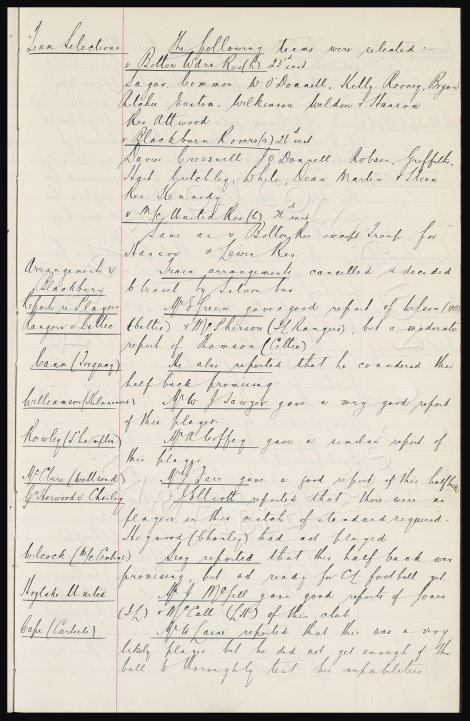 Team Selections The following teams were selected :-
v Bolton Wdrs Res (h) 23rd inst
Sagar, Common, W O'Donnell, Kelly, Rooney, Bryan
Archie Barton, Wilkinson Weldon & Hanson
Res Attwood
v Blackburn Rovers (a) 26th inst
Davies Cresswell J O'Donnell Robson, Griffiths,
Hart Critchley, White, Dean Martin & Stein
Res Kennedy
v M/c United Res (h) inst
Same as v Bolton Res except Troup for
Hanson & Lewis Res
Arrangements v Blackburn Train arrangements cancelled & decided
to travel by Silvon bus
Reports re Players Mr E Green gave good report of Wilson
Rangers v Celtic (Celtic) & McPherson (IL Rangers), but a moderate
report of Thomson (Celtic)
Cann (Torquay) He also reported that he considered this
half back promising
Williamson (Kilmarnock) Mr W J Sawyer gave a very good report
of this player.
Rowley (S'hampton) Mr A Coffey gave a similar report of
this player
McClure (Wallsend) Mr J Fare gave a good report of this half back
Harwood v Chorley J Elliott reported that there were no
players in this match of standard required.
Haywood (Chorley) had not played
Wilcock (M/c Central) Secy reported that this half back was
promising, but not ready for CL football yet
Hoylake United Mr J McGill gave good reports of Jones
(IL) & McCall (LH) of this club
Cape (Carlisle) Mr W Caine reported that this was a very
likely player. but he did not get enough of the
ball to thoroughly test his capabilities